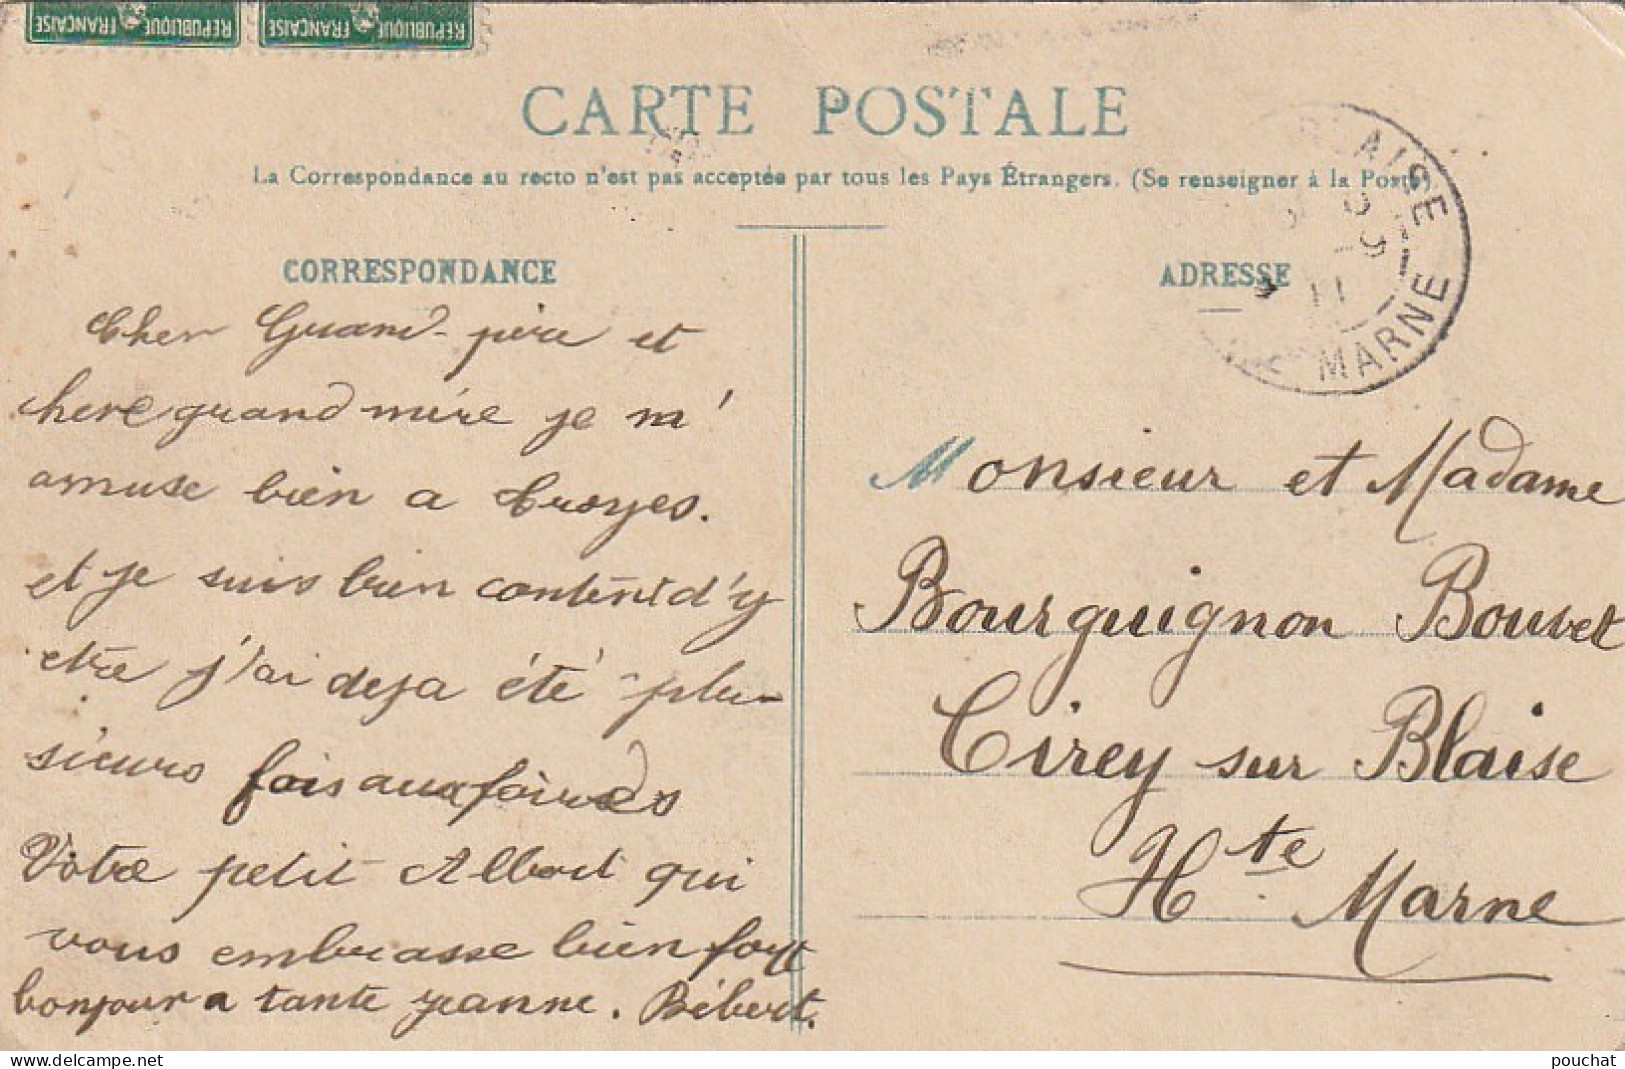 REPUBLIQUE FRANÇAISE REPUBLIQUE FRANÇAISE
CARTE POSTALE
La Correspondance au recto n'est pas acceptée par tous les Pays Étrangers. (Se renseigner à la Poste)
CORRESPONDANCE
Cher Grand-père et
chere grand mère je m'
amuse bien a Troyes.
et je suis bien content d'y
etre j'ai deja été plu-
sieurs fois aux foires
Votre petit Albert qui
vous embrasse bien fort
bonjour a tante jeanne. Bébert.
ADRESSE
BLAISE
11
MARNE
Monsieur et Madame
Bourguignon Bouvet
Cirey sur Blaise
Hte Marne
delcampe.net
pouchat